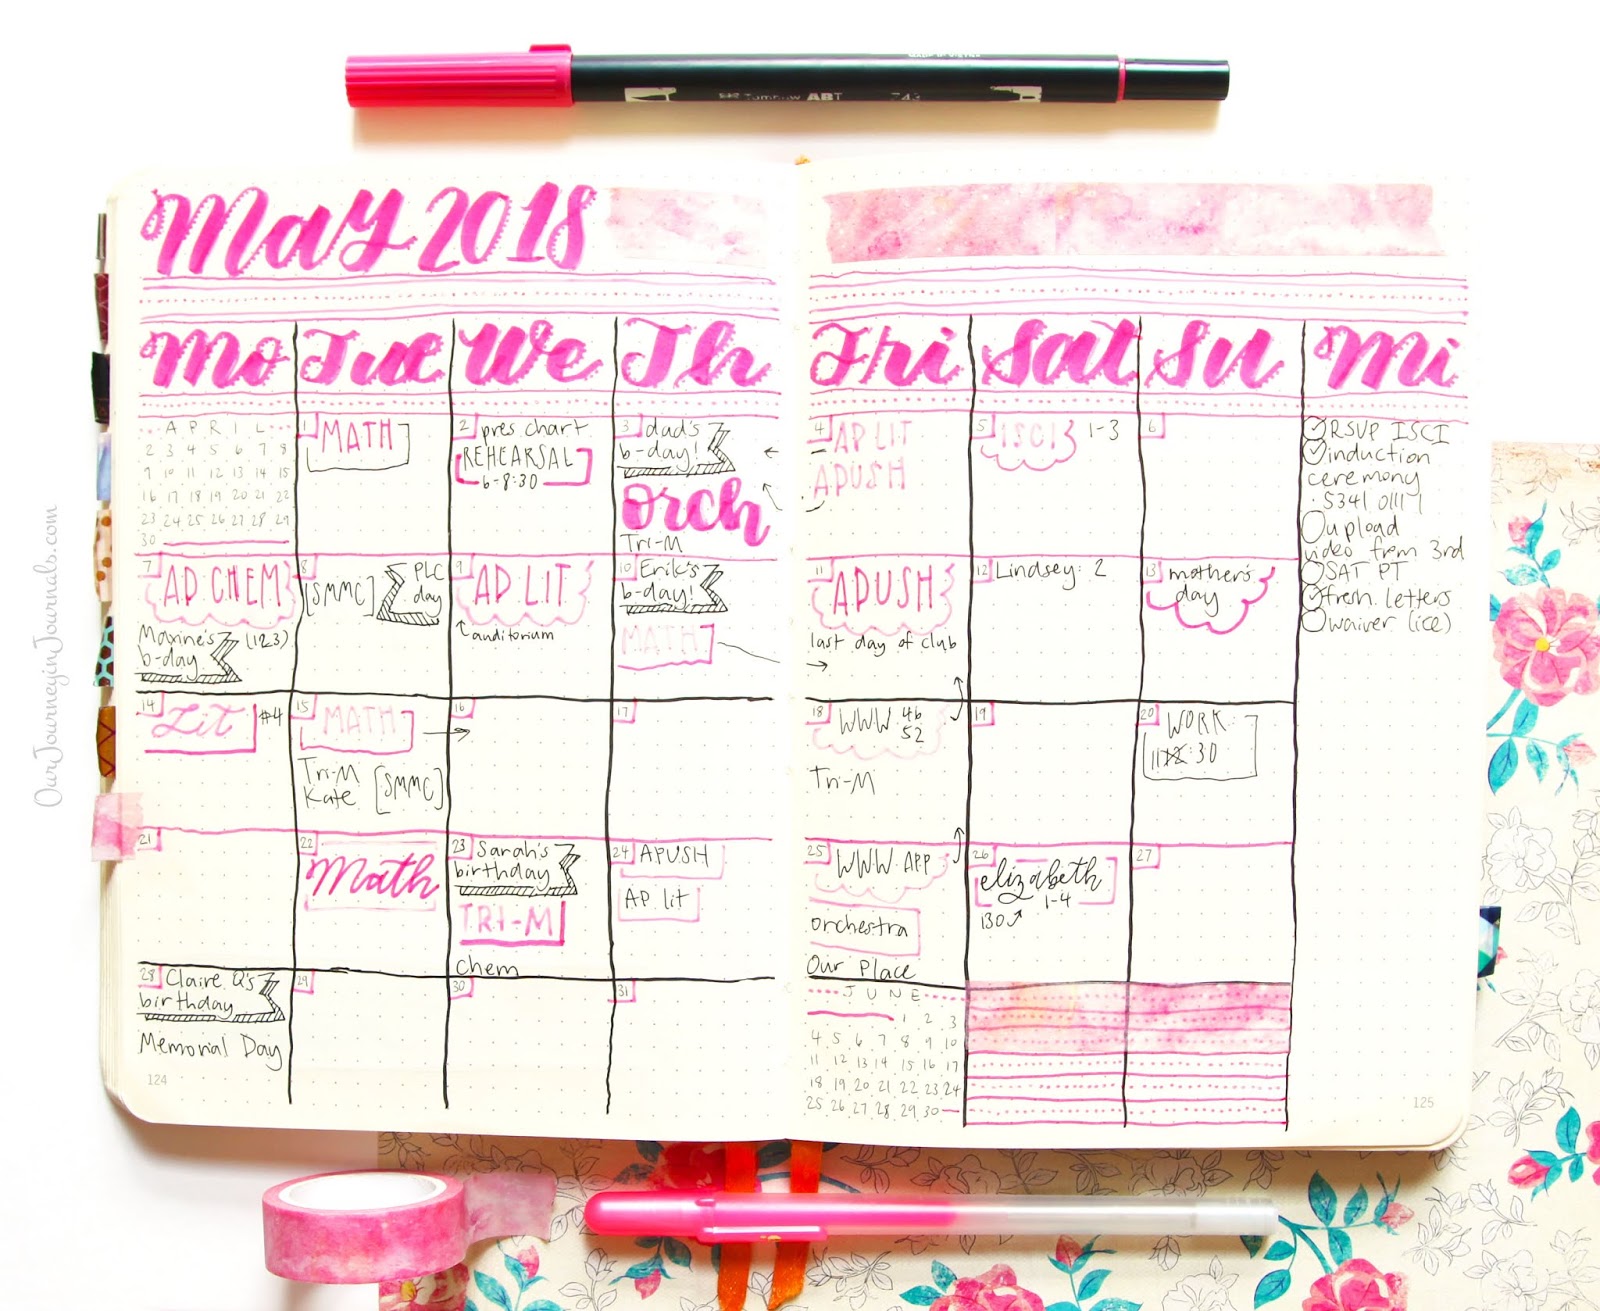 Tombow ABT
OurJourneyinJournals.com
May 2018
Mo Tue We Th Fri Sat Su Mi
APRIL
2 3 4 5 6 7 8
9 10 11 12 13 14 15
16 17 18 19 20 21 22
23 24 25 26 27 28 29
30
1 MATH
2 pres chart
REHEARSAL
6-8:30
3 dad's
b-day!
orch
Tri-M
4 AP LIT
APUSH
5 ISCI 1-3
6
RSVP ISCI
induction
ceremony
upload
video from 3rd
SAT PT
fresh. letters
waiver (ice)
7 AP CHEM
Maxine's (1123)
b-day
8
[SMMC] PLC
day
9 AP LIT
auditorium
10 Erik's
b-day!
MATH
11 APUSH
last day of club
12 Lindsey: 2
13 mother's
day
14 Lit #4
15 MATH
Tri-M
Kate [SMMC]
16
17
18 WWW 46
52
Tri-M
19
20 WORK
30
21
22
Math
23 Sarah's
birthday
TRI-M
Chem
24 APUSH
AP lit
25 WWW APP
orchestra
Our Place
26
elizabeth
1-4
130
27
28 Claire Q's
birthday
Memorial Day
29
30
31
JUNE
1 2 3
4 5 6 7 8 9 10
11 12 13 14 15 16 17
18 19 20 21 22 23 24
25 26 27 28 29 30
124
125